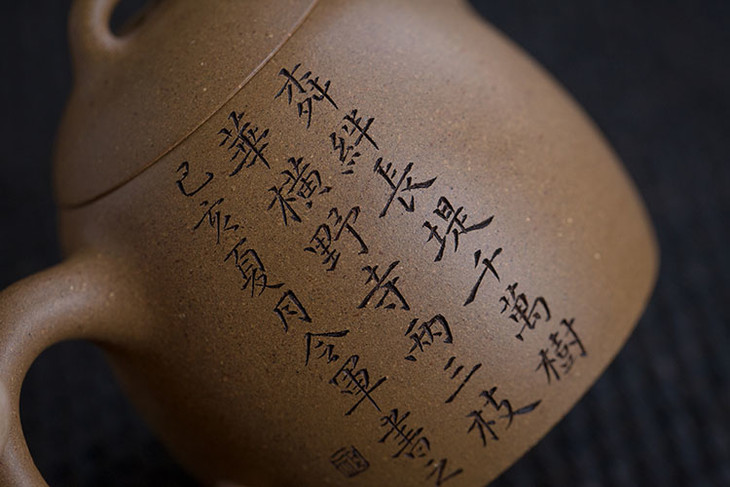 絆長堤千萬樹
華橫野寺兩三枝
己亥夏月令軍書之